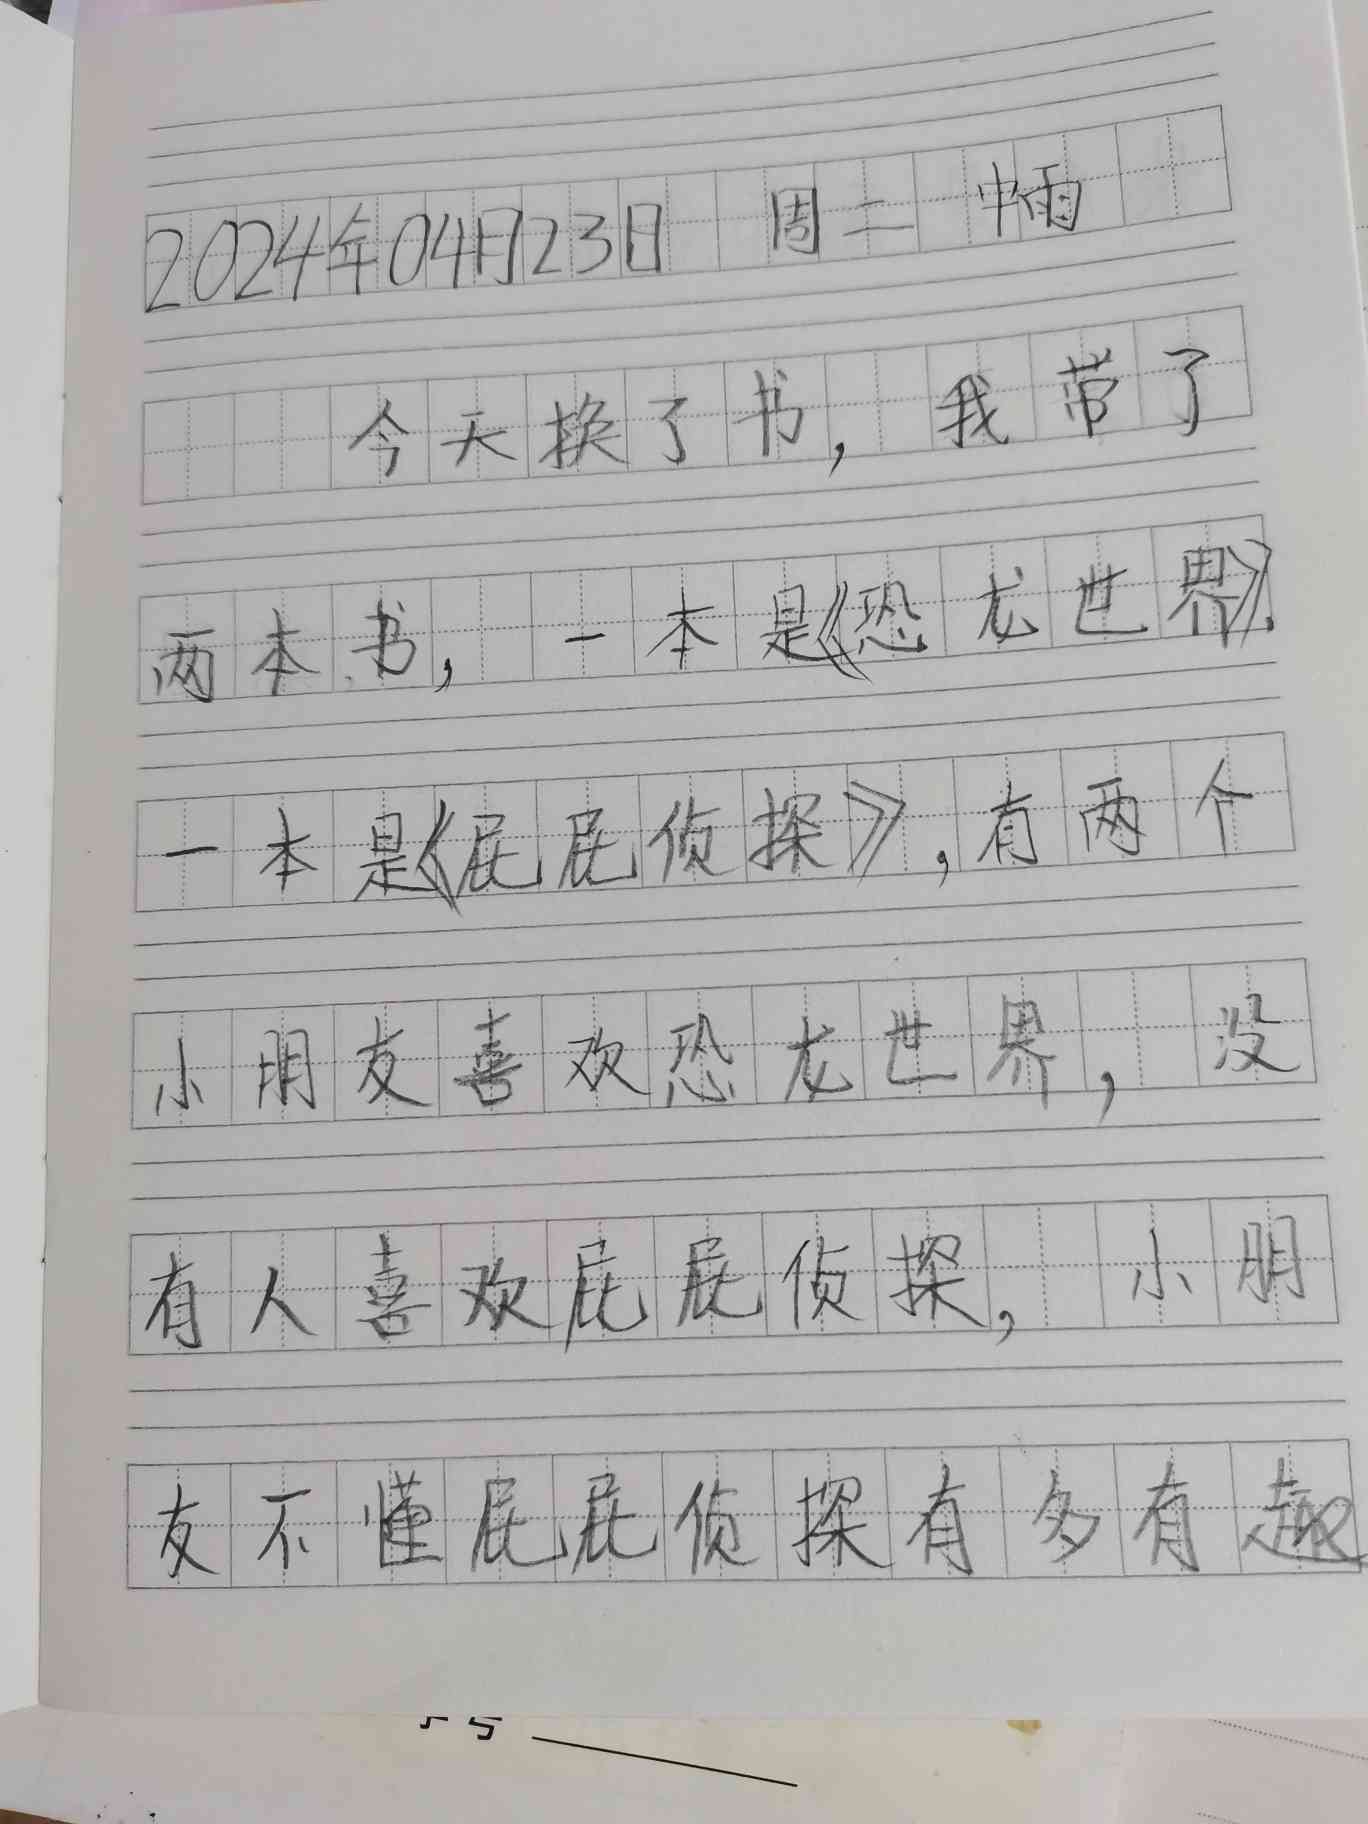 2024年04月23日 周二 中雨
今天换了书，我带了
两本书，一本是《恐龙世界》，
一本是《屁屁侦探》，有两个
小朋友喜欢恐龙世界，没
有人喜欢屁屁侦探，小朋
友不懂屁屁侦探有多有趣